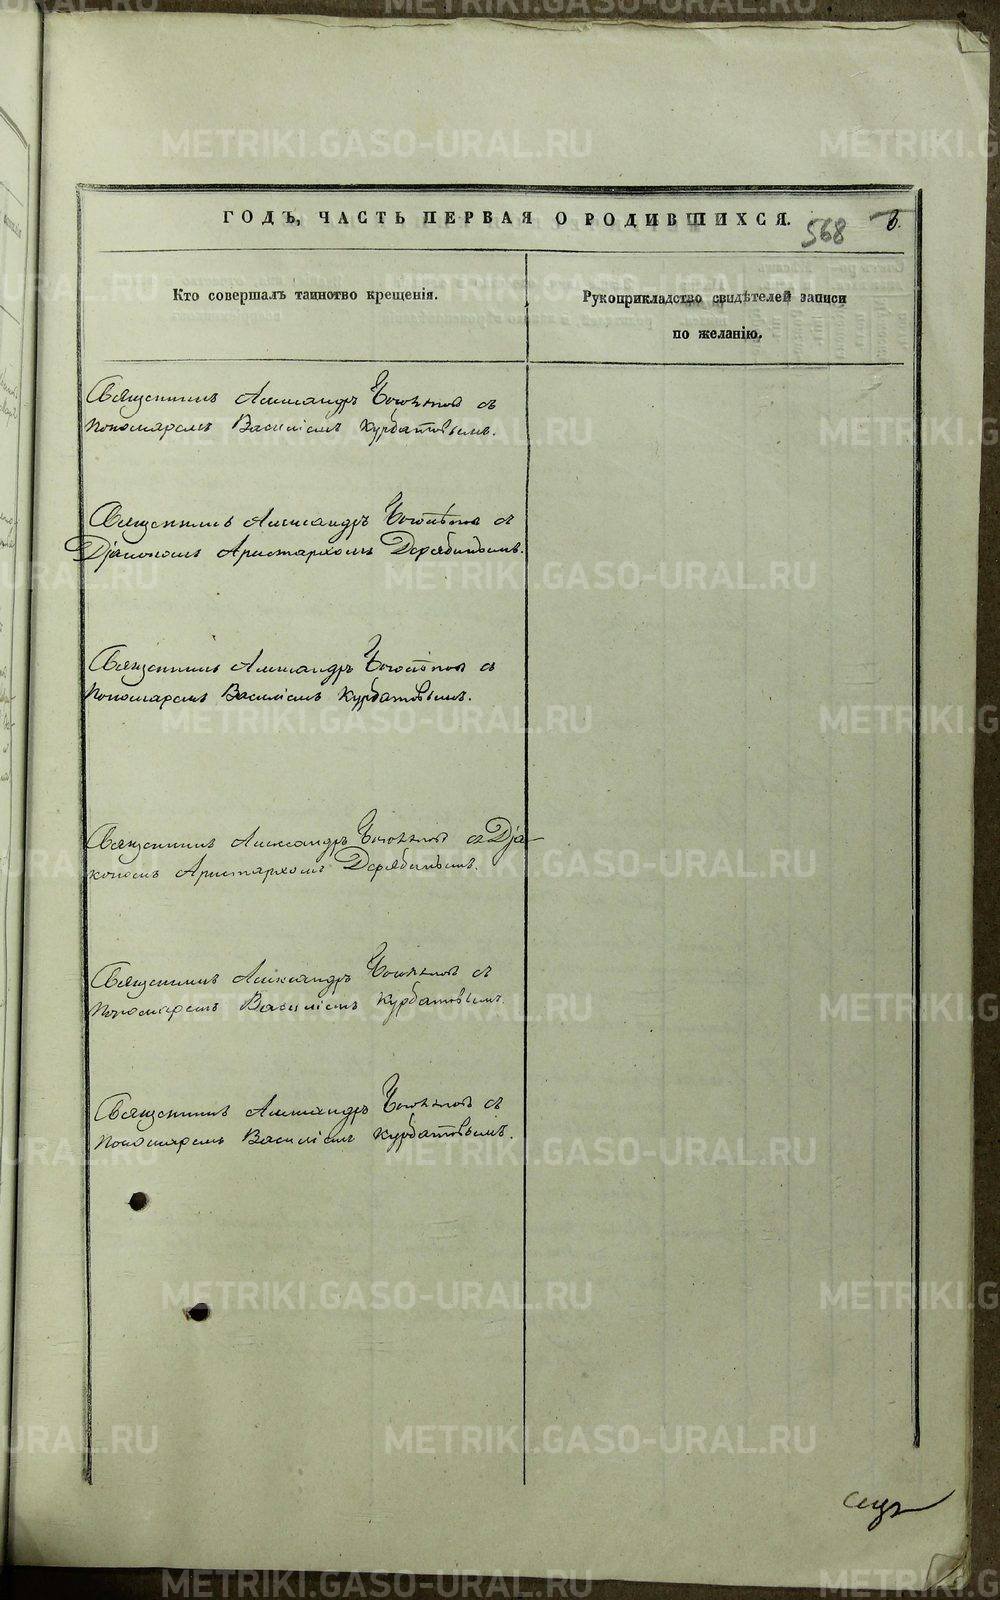 ГОДЪ, ЧАСТЬ ПЕРВАЯ О РОДИВШИХСЯ.
568
Кто совершалъ таинство крещенія.
Рукоприкладство свидѣтелей записи
по желанію.
Священникъ Александръ съ
Пономаремъ Василіемъ Курбатовымъ.
Священникъ Александръ съ
Діакономъ Аристархомъ Дерябинымъ.
Священникъ Александръ съ
Пономаремъ Василіемъ Курбатовымъ.
Священникъ Александръ съ Діа-
кономъ Аристархомъ Дерябинымъ.
Священникъ Александръ съ
Пономаремъ Василіемъ Курбатовымъ.
Священникъ Александръ съ
Пономаремъ Василіемъ Курбатовымъ.
METRIKI.GASO-URAL.RU